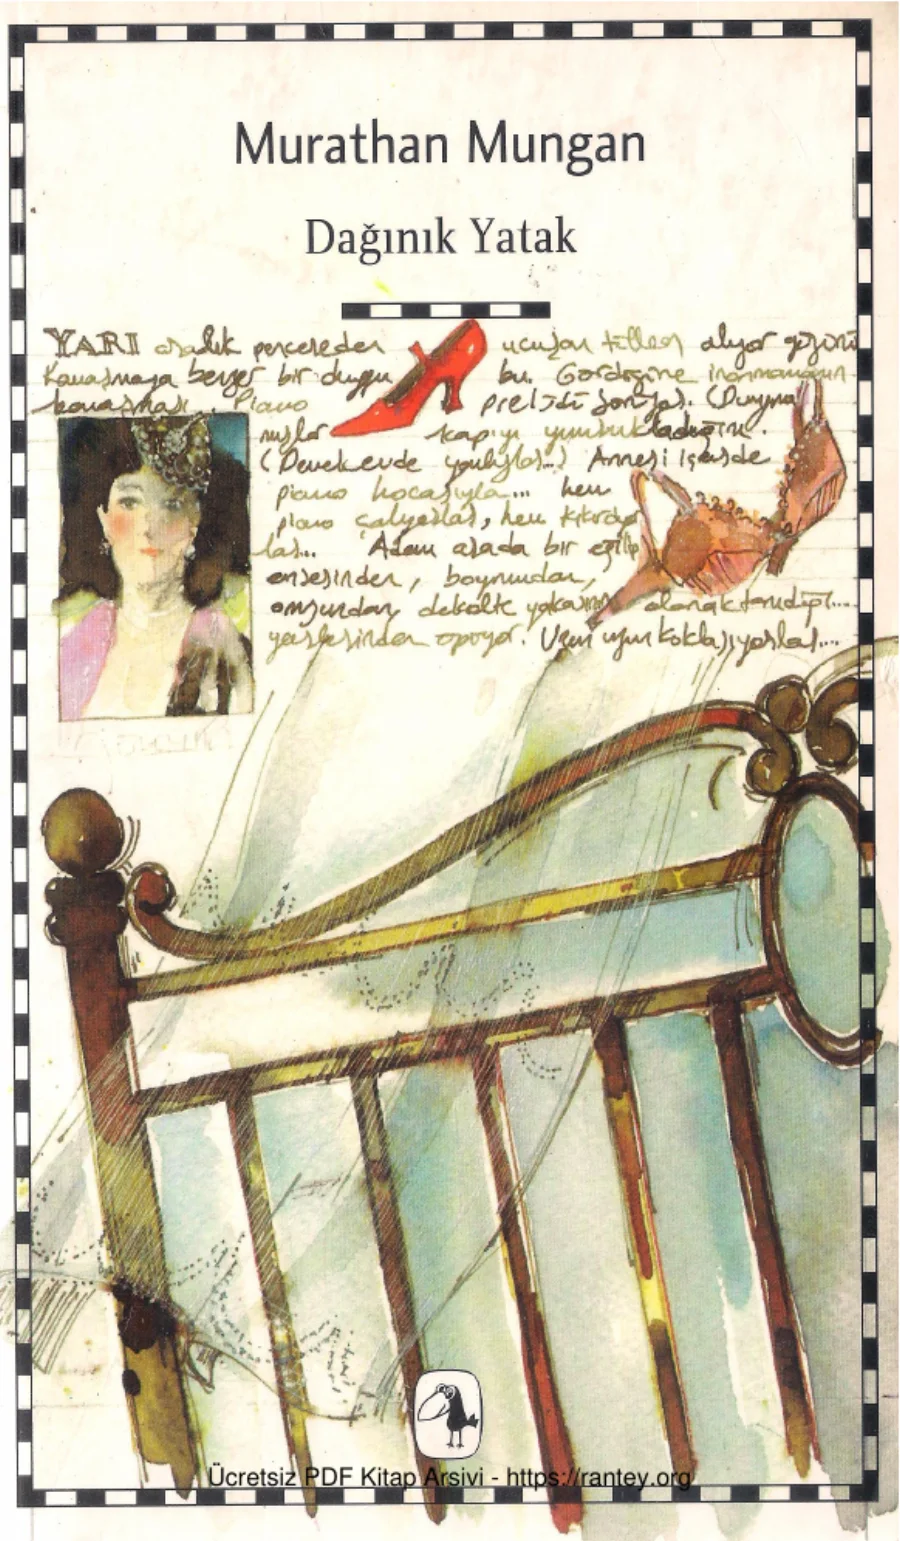 Murathan Mungan
Dağınık Yatak
YARI aralık pencereden uçuşan tüller alıyor gözünü
Kamaşmaya benzer bir duygu bu. Gördüğüne inanmamanın
kamaşması. Piano prelüdü sonlar. (Duyma
mışlar kapıyı yumrukladığını.
(Demek evde yoklar..) Annesi içerde
piano hocasıyla... hem
piano çalıyorlar, hem kıkırdıyor
lar... Adam arada bir eğilip
ensesinden, boynundan,
omzundan, dekolte yakasının olanak tanıdığı...
yerlerinden öpüyor. Uzun uzun koklaşıyorlar...
Ücretsiz PDF Kitap Arsivi - https://rantey.org